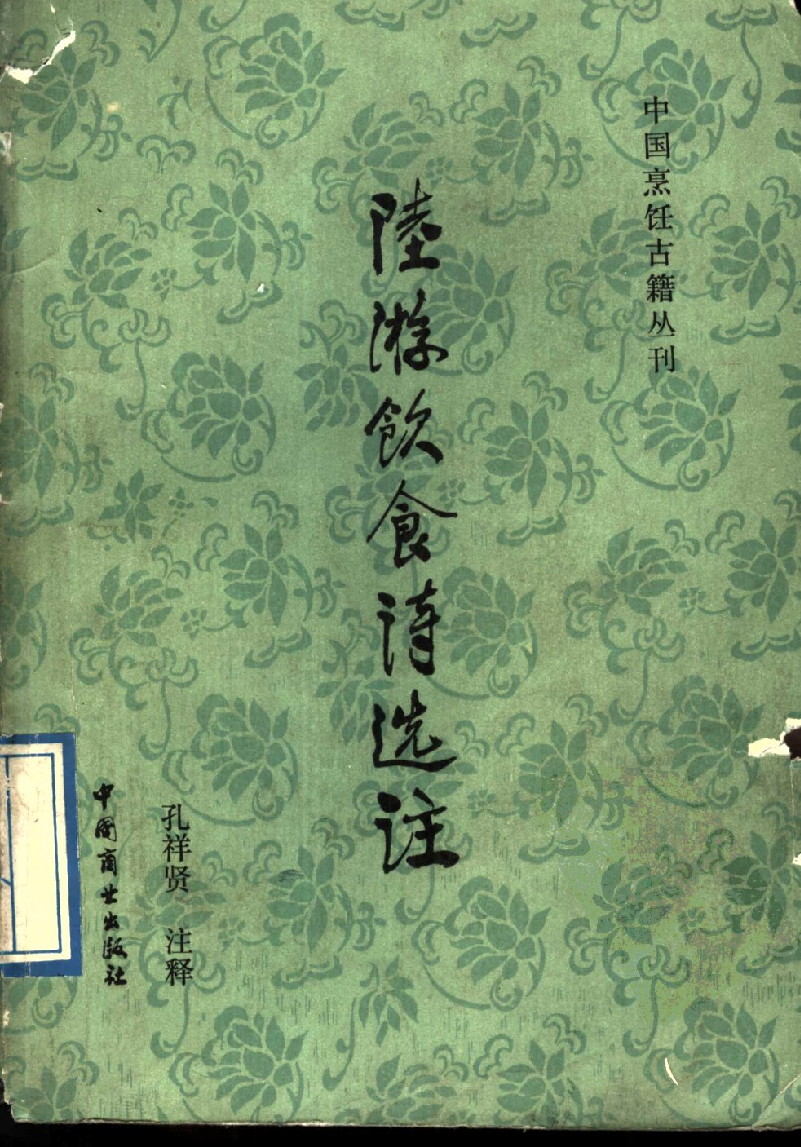 中国烹饪古籍丛刊
陸游飲食詩选註
孔祥贤 注释
中国商业出版社